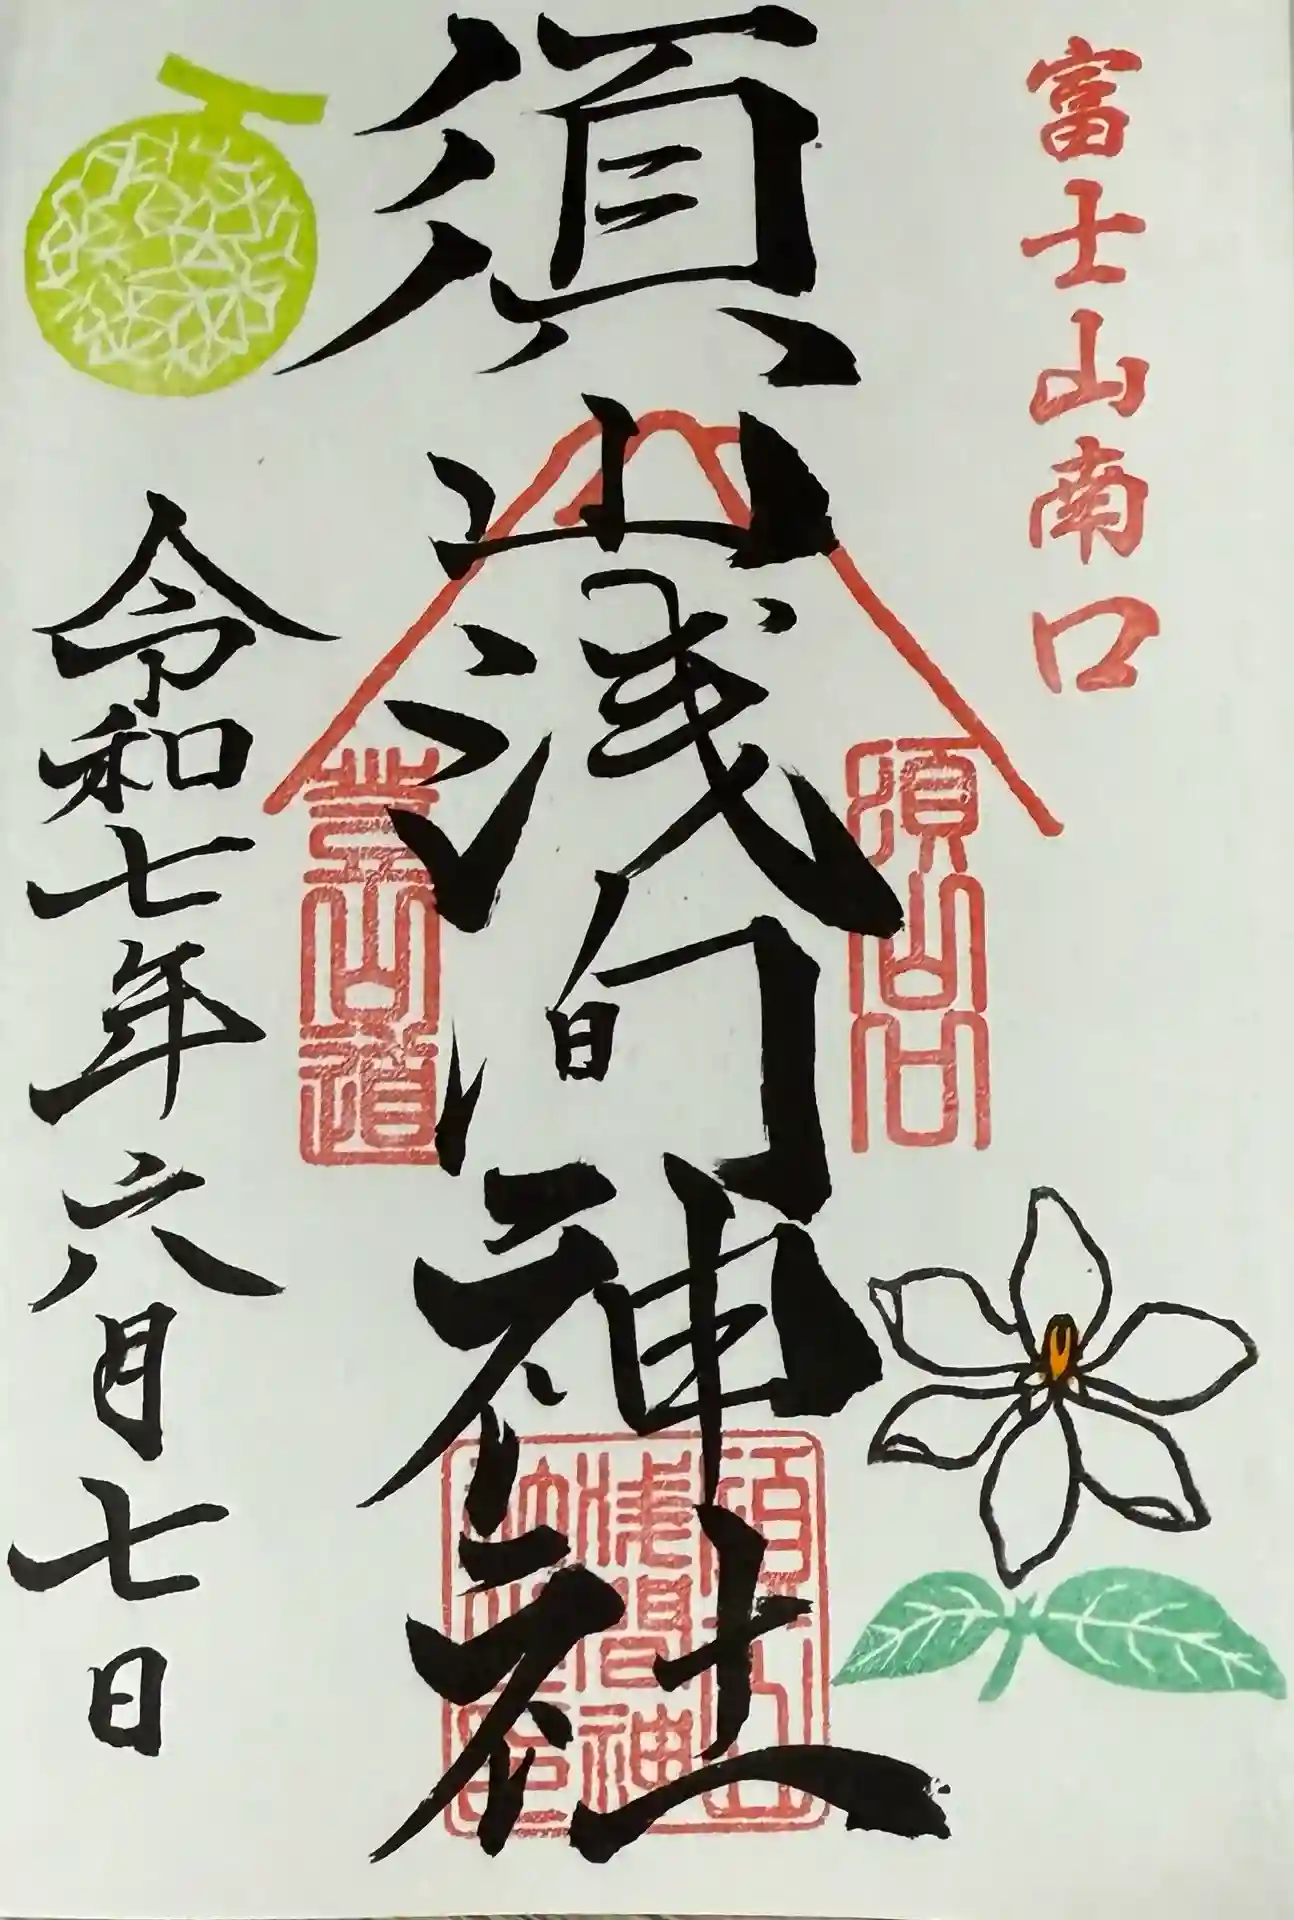 富士山南口
須山口
須山浅间神社
登山道
須山
浅間神
社之印
令和七年六月七日